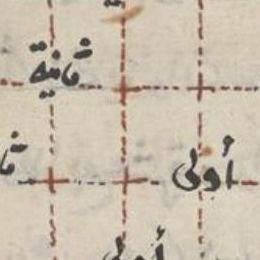 ثانية
أولى
أولى